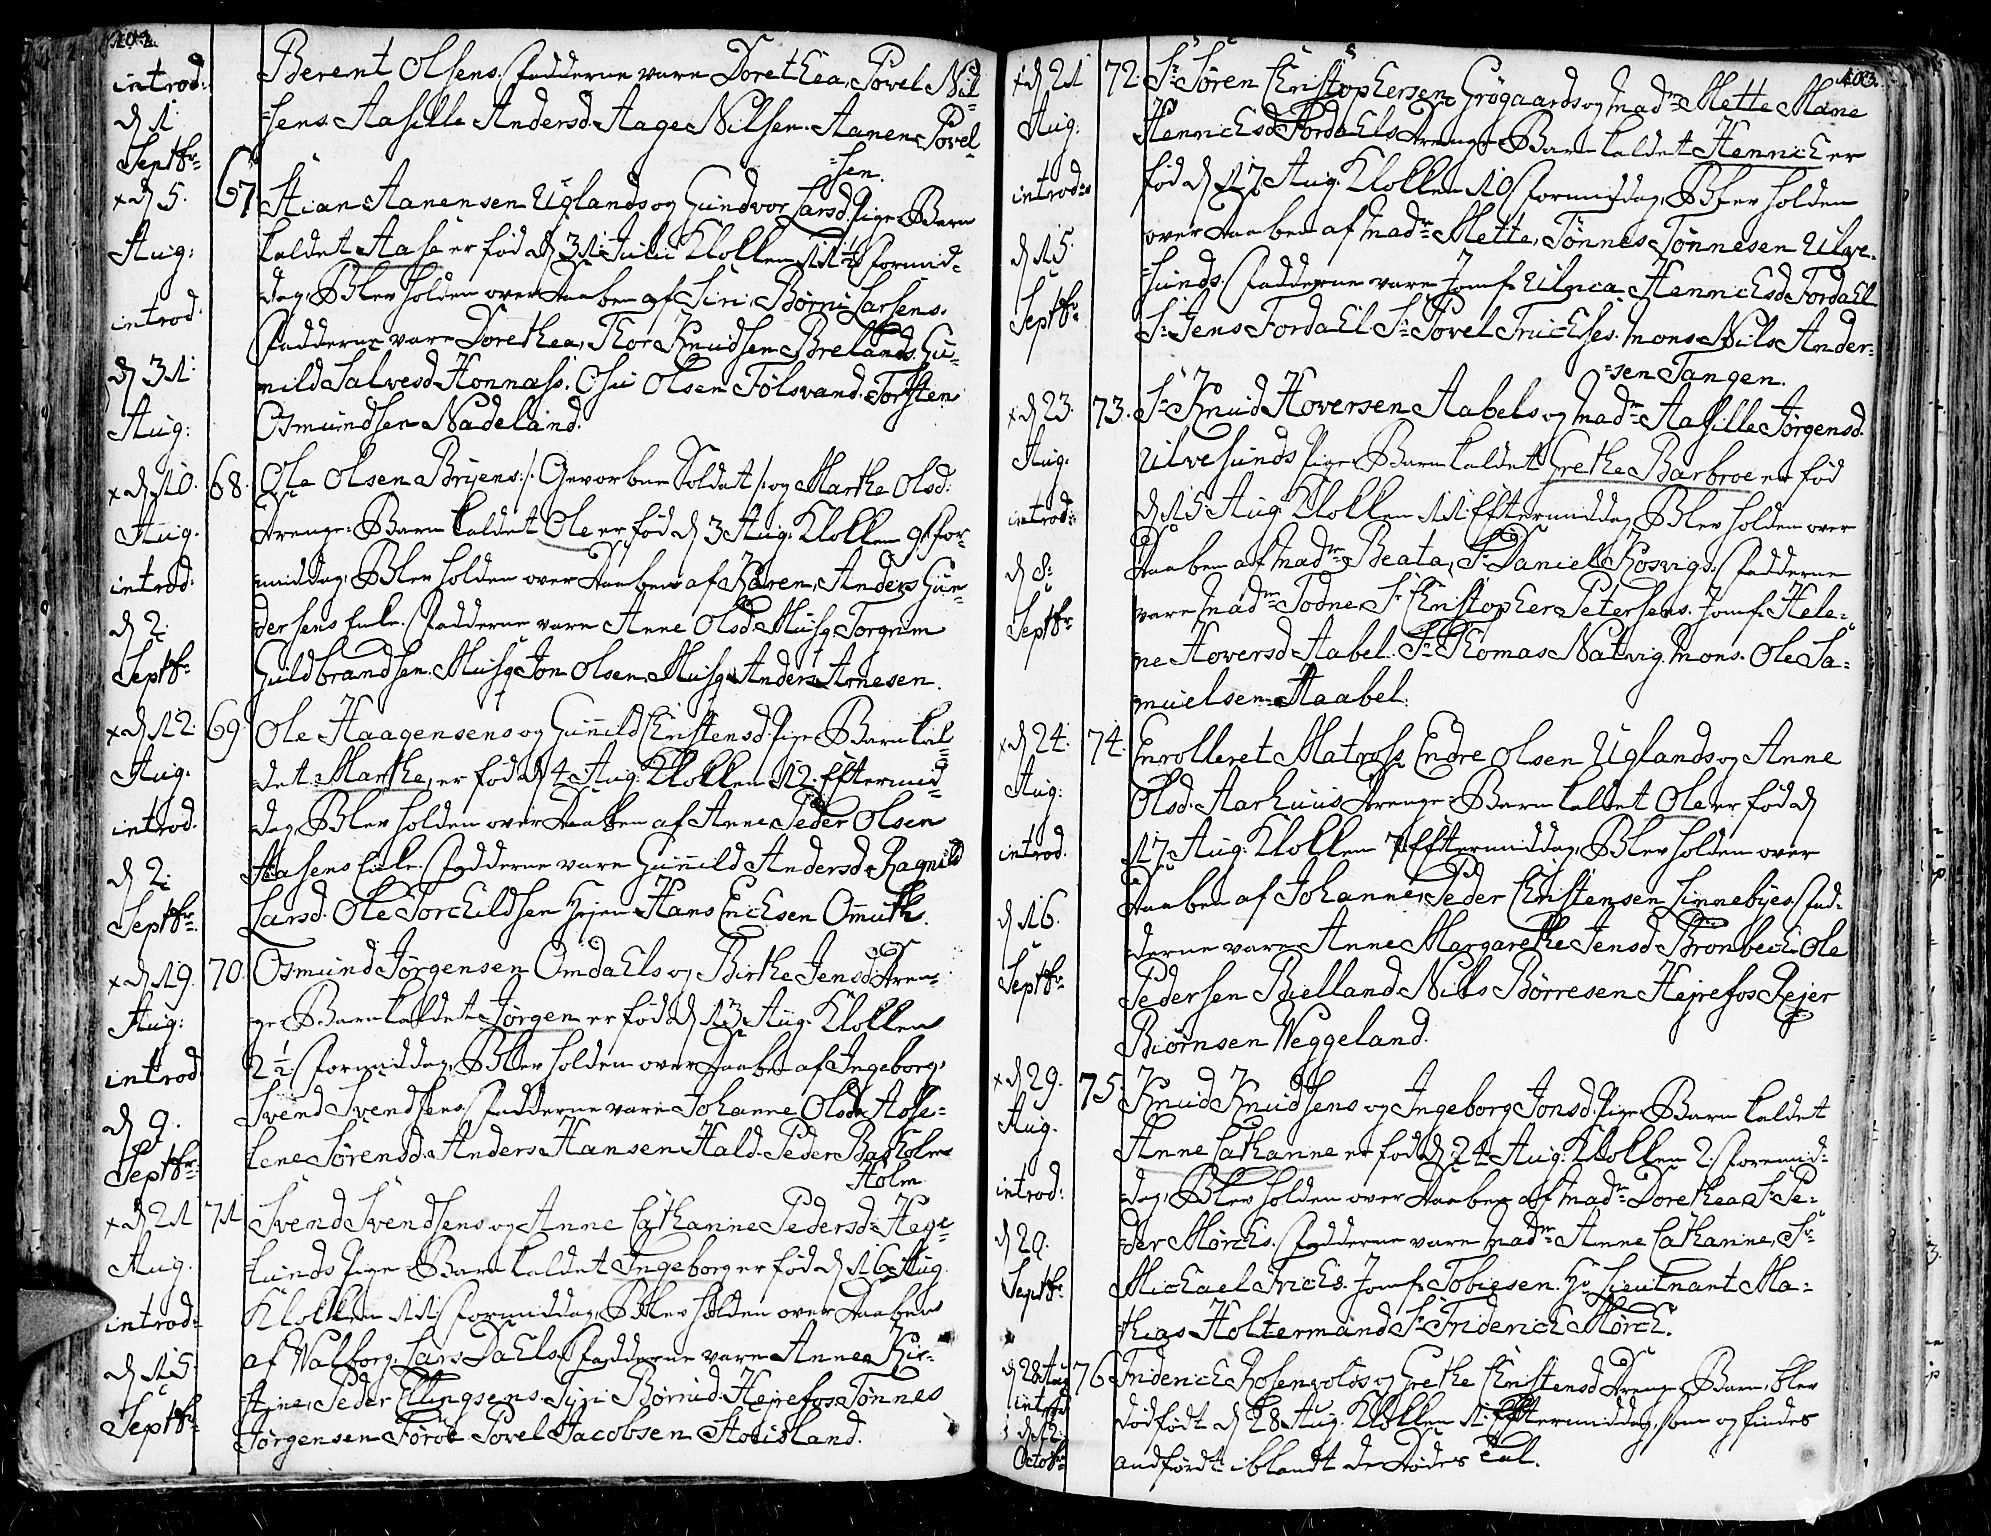 402.
introd:
d 1.
Septbr
Berent Olsens. Fadderne vare Dorethea, Povel Nil-
sens Aasille Andersd. Aage Nilsen. Aanen Povel-
sen.
x d 5.
Aug:
introd.
d 31:
Aug:
67
Stian Aanensen Uglands og Gundvor Larsd. Pige-Barn
kaldet Aase er fød d 31 Julii Klokken 11 1/2 Formid-
dag, Blev holden over Daaben af Siri, Børni Larsens.
Fadderne vare Dorethea, Thor Knudsen Brelands. Gu-
nild Salvesd Honnass. Osu Olsen Følsvand. Torsten
Osmundsen Nadeland.
x d 10.
Aug.
introd:
d 2.
Septbr
68.
Ole Olsen Bryens /: Gevorben Soldat :/ og Marthe Olsd.
Drenge-Barn kaldet Ole er fød d 3 Aug. Klokken 9 For-
middag, Blev holden over Daaben af Karen, Anders Gun-
dersens Enke. Fadderne vare Anne Olsd. Musq Torgrim
Guldbrandsen. Musq Jon Olsen. Musq Anders Arnesen.
x d 12.
Aug.
introd.
d 2.
Septbr.
69.
Ole Haagensens og Gunild Christensd. Pige-Barn kal-
det Marthe, er fød d 4 Aug. Klokken 12. Eftermid-
dag, Blev holden over Daaben af Anne Peder Olsen
Aasens Enke. Fadderne vare Gunild Andersd. Ragnild
Larsd. Ole Torchildsen Hejen Hans Erichsen Omuth.
x d 19.
Aug:
introd
d 9.
Septbr.
70.
Osmund Jørgensen Omdahls og Birthe Jensd Dren-
ge-Barn kaldet Jørgen er fød d 13 Aug. Klokken
2 1/2 Formiddag, Blev holden over Daaben af Ingeborg,
Svend Svendsens Fadderne vare Johanne Olsd. Hose-
lene Sørensd. Anders Hansen Hald. Peder Bagholm
Holm.
x d 21
Aug.
introd:
d 15
Septbr
71
Svend Svendsens og Anne Cathanne Pedersd. Hege-
lunds Pige Barn kaldet Ingeborg er fød d 16 Aug.
Klokken 11 Formiddag, Blev holden over Daaben
af Walborg, Lars Dahls. Fadderne vare Anne Kir-
stine, Peder Ellingsens. Siri Børrud. Hejrefos Tønnes
Jørgensen Føroe Povel Jacobsen Stousland.
403.
x d 21
Aug:
introd:
d 15.
Septbr
72.
Sr Søren Christophersen Grøgaards og Madm Mette Marie
Henrichsd Fordahls Drenge Barn kaldet Henrich er
fød d 17 Aug. Klokken 10 Formiddag, Blev holden
over Daaben af Madm Mette, Tønnes Tønnesen Ulve-
sunds. Fadderne vare Jomf. Ulrica Henrichsd Fordahl
Sr Jens Fordahl. Sr Povel Truchses. Mons. Nils Ander-
sen Tangen.
x d 23.
Aug.
introd:
d 8.
Septbr
73.
Sr Knud Hoversen Aabels og Madm Aasille Jørgensd.
Ulvesunds Pige Barn kaldet Grethe Barbroe er fød
d 15 Aug. Klokken 11. Eftermiddag, Blev holden over
Daaben af Madm Beata, Sr Daniel Kosvigs. Fadderne
vare Madm Todne, Sr Christopher Petersens. Jomf. Hele-
ne Hoversd Aabel. Sr Thomas Natvig. Mons. Ole Sa-
muelsen Haabel.
x d 24.
Aug:
introd.
d 16.
Septbr
74.
Enrolleret Matross Endre Olsen Uglands og Anne
Olsd. Aarhuus Drenge-Barn kaldet Ole er fød d
17 Aug. Klokken 7 Eftermiddag, Blev holden over
Daaben af Johanne, Peder Christensen Linnebyes. Fad-
derne vare Anne Margarethe Jensd. Bronbech. Ole
Pedersen Bielland. Nils Børresen Hejrefos Rejer
Biørnsen Weggeland.
x d 29.
Aug.
introd:
d 29.
Septbr.
75.
Knud Knudsens og Ingeborg Jonsd. Pige-Barn kaldet
Anne Cathanne er fød d 24 Aug. Klokken 2. Formid-
dag, Blev holden over Daaben af Madm Dorethea, Sr Pe-
der Mørchs. Fadderne vare Madm Anne Cathanne, Sr
Michael Frichs. Jomf. Tobiesen. Hr Lieutnant Ma-
thias Holtermand Sr Friderich Mørch.
d 28 Aug
introd
d 12.
Octobr
76.
Friderich Rosenvolds og Grethe Christensd. Drenge-Barn, blev
dødfødt d 28 Aug. Klokken 1. Eftermiddag, som og findes
andførdt iblandt de Dødes Tal.